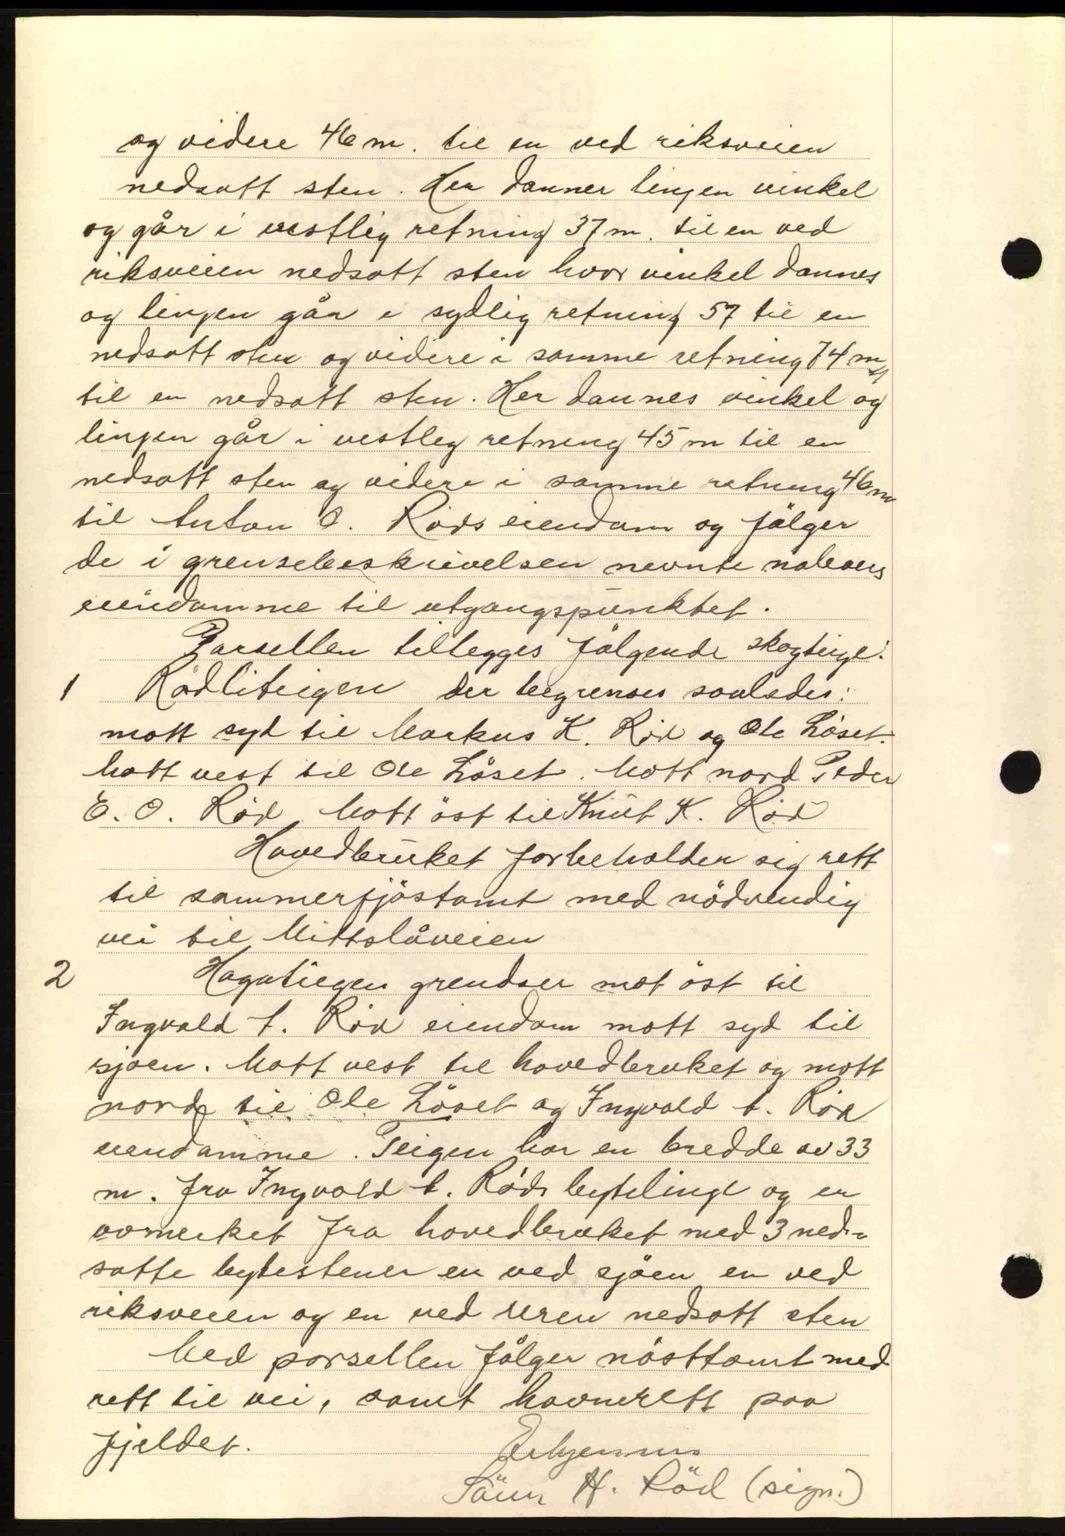 og videre 46 m. til en ved riksveien
nedsatt sten. Her danner linjen vinkel
og går i vestlig retning 37 m. til en ved
riksveien nedsatt sten hvor vinkel dannes
og linjen går i sydlig retning 57 til en
nedsatt sten og videre i samme retning 74 m
til en nedsatt sten. Her dannes vinkel og
linjen går i vestleg retning 45 m til en
nedsatt sten og videre i samme retning 46 m
til Anton O. Röds eiendom og fölger
de i grensebeskrivelsen nevnte naboers
eiendomme til utgangspunktet.
Parsellen tillegges fölgende skogteige:
1 Rödliteigen der begrenses saaledes:
mott syd til Markus K. Röd og Ole Löset.
Mott vest til Ole Löset. Mott nord Peder
E. O. Röd Mott öst til Knut K. Röd
Hovedbruket forbeholder sig rett
til sommerfjöstomt med nödvendig
vei til Mittslåveien
2 Hagateigen grendser mot öst til
Ingvald t. Röd eiendom mott syd til
sjöen. Mott vest til hovedbruket og mott
nord til Ole Löset og Ingvald t. Röd
eiendomme. Teigen har en bredde av 33
m. fra Ingvald t. Röds bytelinje og er
avmerket fra hovedbruket med 3 ned-
satte bytestener en ved sjöen en ved
riksveien og en ved uren nedsatt sten
Med parsellen fölger nösttomt med
rett til vei, samt havnerett paa
fjeldet.
Erkjennes
H. Röd (sign.)